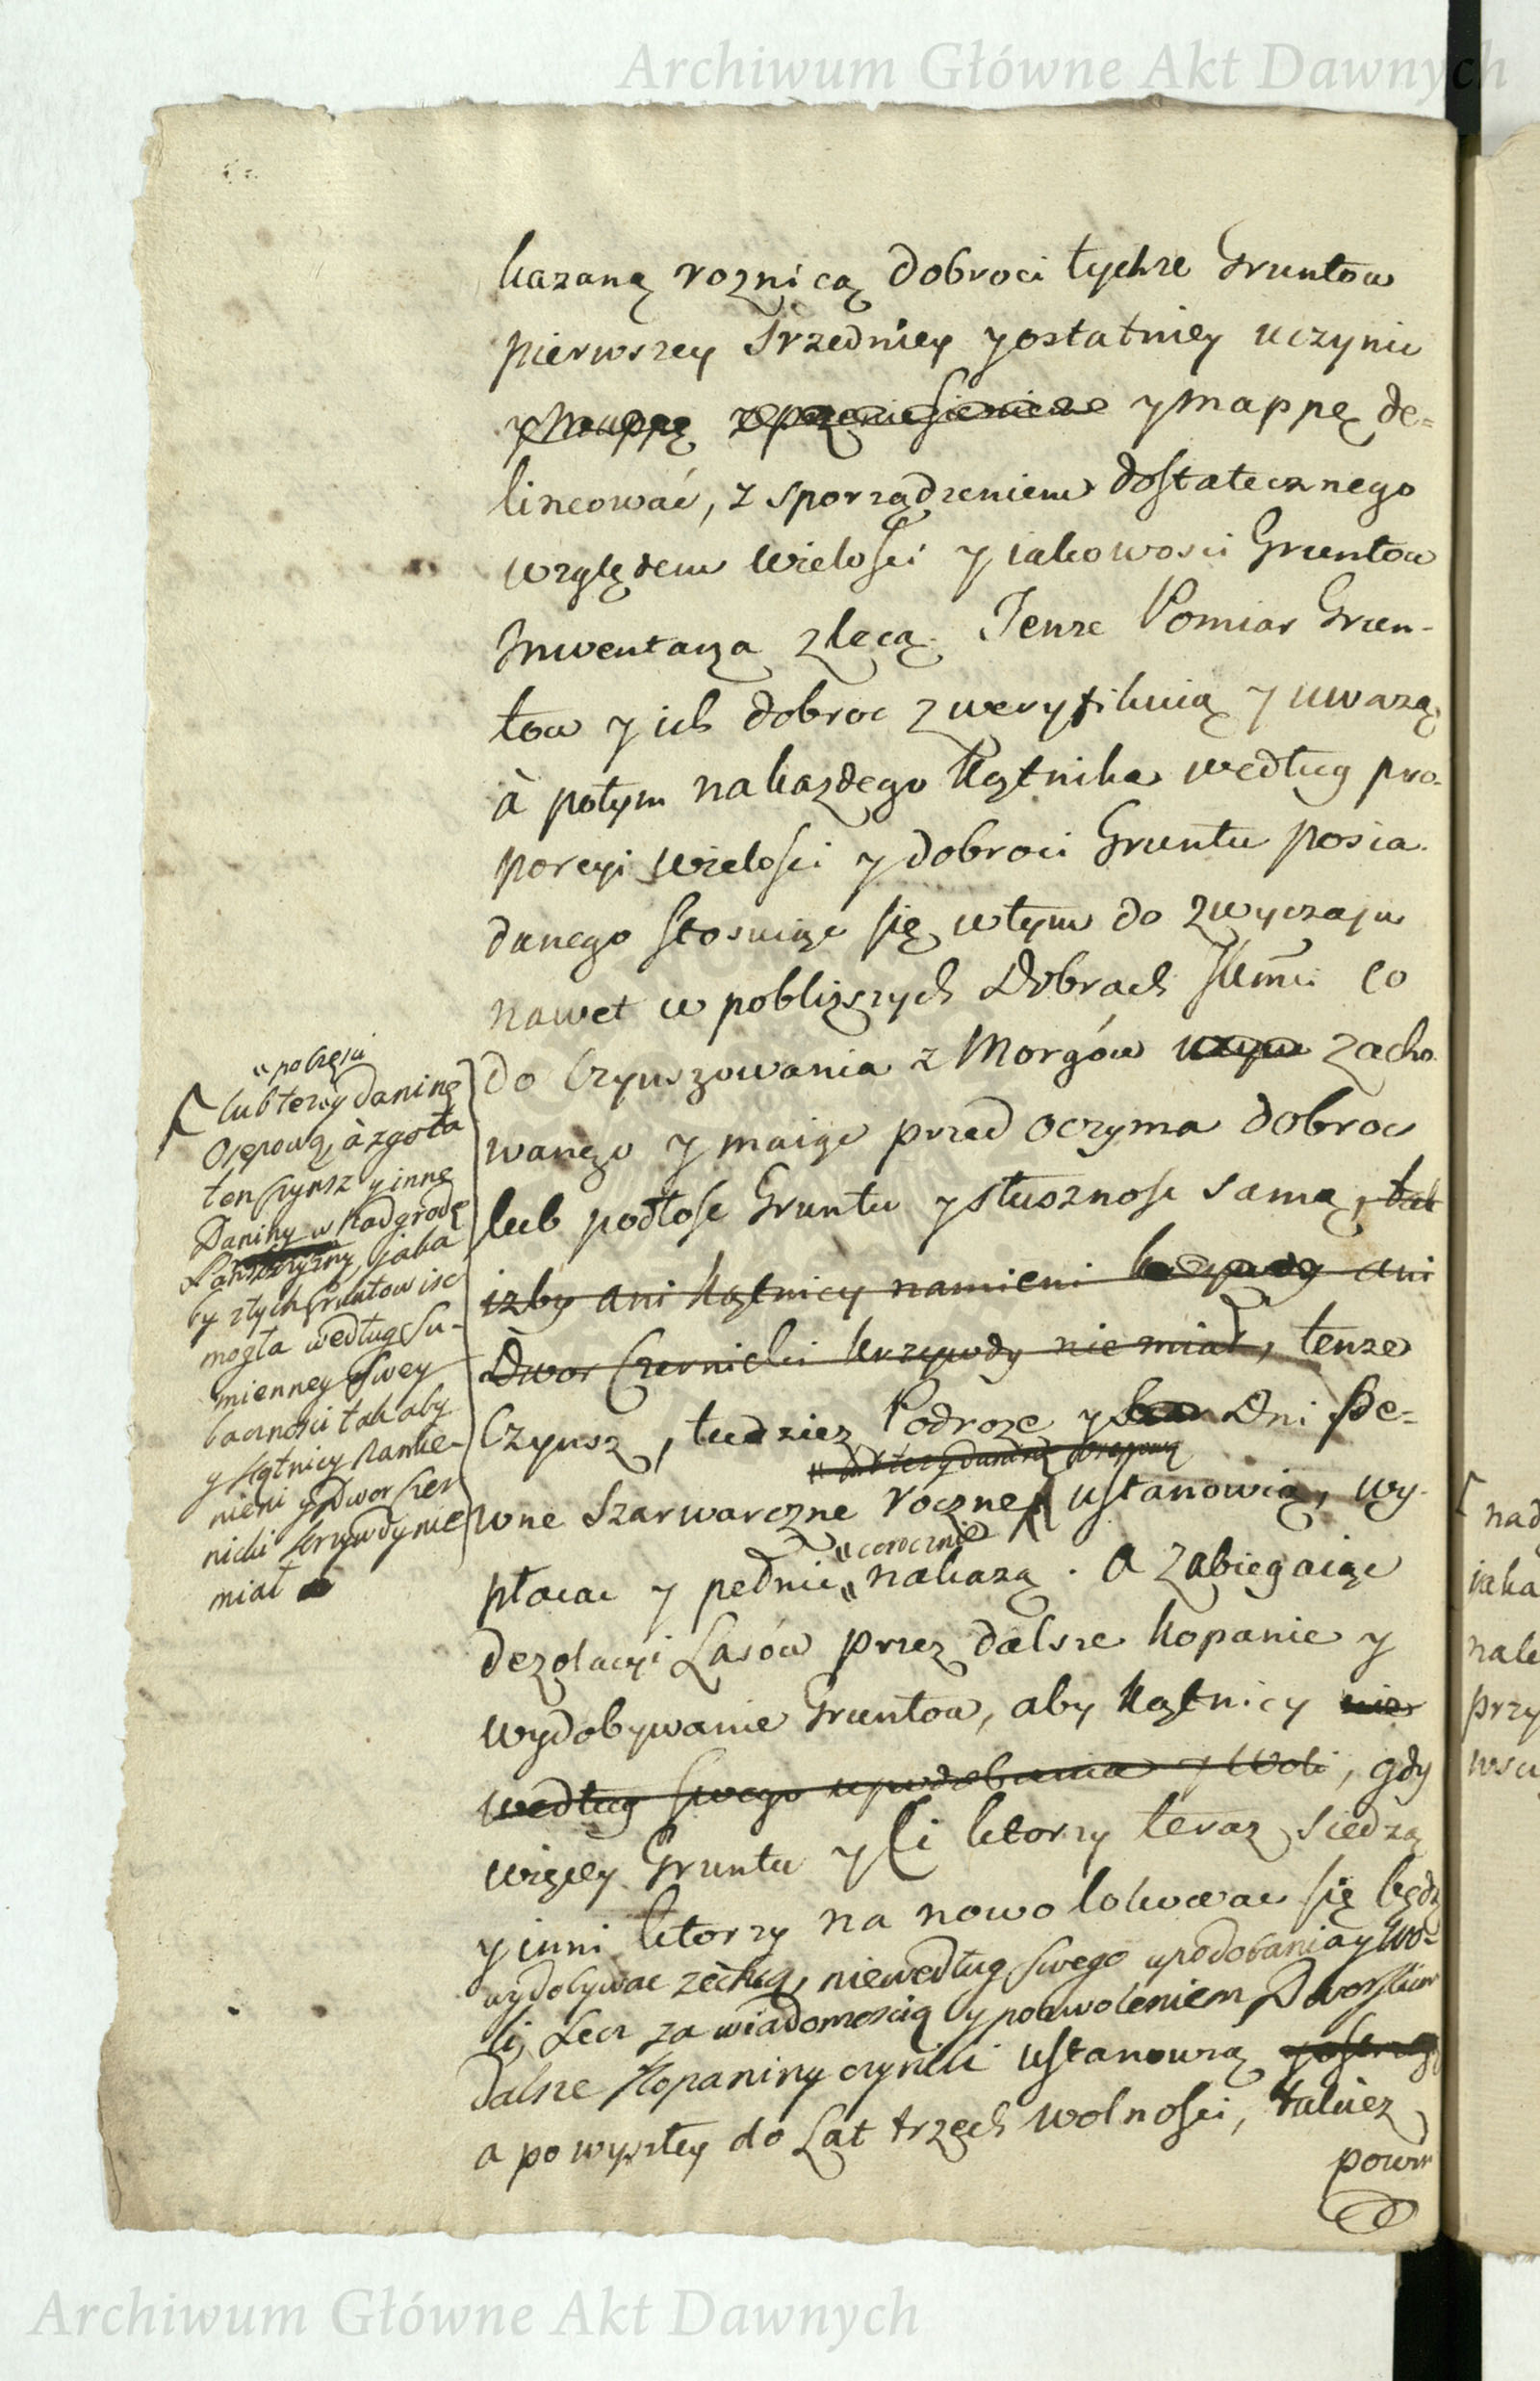 Archiwum Główne Akt Dawnych
kazaną roznicą dobroci tychze Gruntow
pierwszey srzedniey y ostatniey uczynic
y Mappę y Mappę de-
lineować, z sporządzeniem dostatecznego
względem wielości y iakowosci Gruntow
Inwentarza zlecą. Tenze Pomiar Grun-
tow y ich dobroc zweryfikuią y uwazą,
à potym na kazdego Kątnika według pro-
porcyi wielości y dobroci Gruntu posia-
danego stosuiąc się w tym do zwyczaju
nawet w pobliższych Dobrach co
do Czynszowania z Morgów zacho-
wanego y maiąc przed oczyma dobroc
lub podłosc Gruntu y słusznosc samą, tak
izby ani Kątnicy namieni krzywdy ani
Dwor Czernicki krzywdy nie miał, tenze
Czynsz, tudziez Podroze y Dni Pe-
wne Szarwarczne roczne ustanowią, wy-
"corocznie
płacac y pełnic nakazą. A zabiegaiąc
dezolacyi Lasów przez dalsze kopanie y
wydobywanie Gruntow, aby Kątnicy nie
według swego upodobania y Woli, gdy
więcey Gruntu y Ci ktorzy teraz siedzą
y inni ktorzy na nowo lokowac się będą
wydobywac zechcą, niewedług swego upodobania y Wo-
li, Lecz za wiadomoscią y pozwoleniem Dworskim
dalsze Kopaniny czynili ustanowią
a po wyszłey do Lat trzech wolności, takiez
powin
lub terzy daninę
Osepową, à zgoła
ten Czynsz y inne
Daniny w nadgrodę
Pańszczyzny, jaka
by z tych Gruntow isc
mogła według Su-
mienney Swey
bacznosci tak aby
y Kątnicy namie-
nieni y Dwor Czer
nicki krzywdy nie
miał
nad
iaka
nale
przy
wsi
Archiwum Główne Akt Dawnych